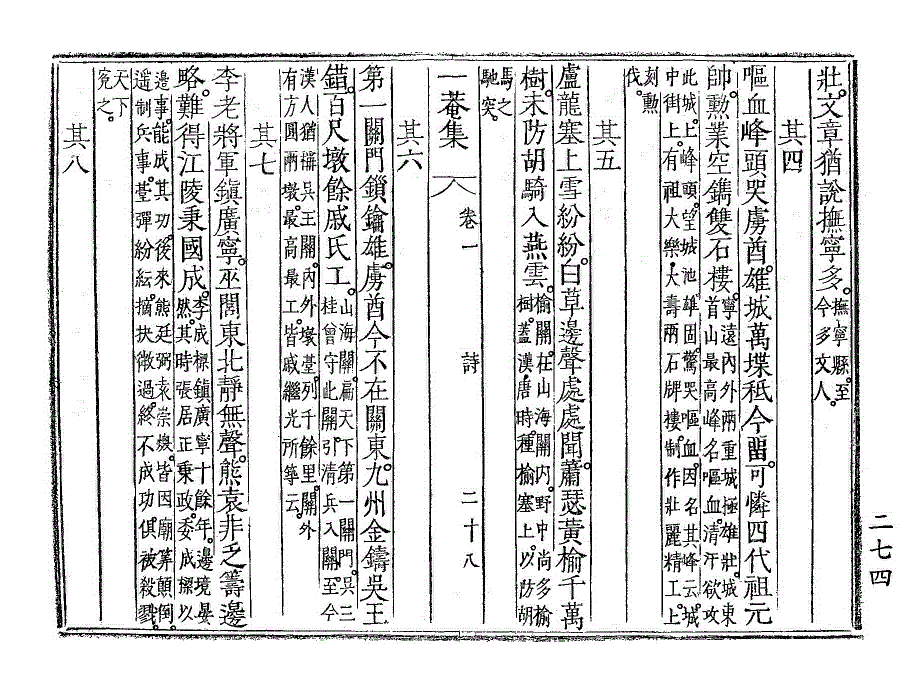 壯。文章猶說撫寧多。撫寧縣。至
今多文人。
其四
嘔血峰頭哭虜酋。雄城萬堞秪今留。可憐四代祖元
帥。勳業空鐫雙石樓。寧遠內外兩重城極雄壯。城東
首山最高峰名嘔血。清汗欲攻
此城。上峰頭。望城池雄固。驚哭嘔血。因名其峰云。城
中街上。有祖大樂,大壽兩石牌樓。制作壯麗精工。上
刻勳
伐。
其五
盧龍塞上雪紛紛。白草邊聲處處聞。蕭瑟黃榆千萬
樹。未防胡騎入燕雲。榆關在山海關內。野中尚多榆
樹。蓋漢,唐時。種榆塞上。以防胡
馬之
馳突。
一菴集 卷一 詩 二十八
其六
第一關門鎖鑰雄。虜酋今不在關東。九州金鑄吳王
錯。百尺墩餘戚氏工。山海關。扁天下第一關門。吳三
桂曾守此關。引清兵入關。至今
漢人猶稱吳王關。內外墩臺列千餘里。關外
有方圓兩墩。最高最工。皆戚繼光所築云。
其七
李老將軍鎭廣寧。巫閭東北靜無聲。熊,袁非乏籌邊
略。難得江陵秉國成。李成樑鎭廣寧十餘年。邊境晏
然。其時張居正秉政。委成樑以
邊事。能成其功。後來熊廷弼,袁崇煥。皆因廟筭顚倒。
遙制兵事。臺彈紛紜。摘抉微過。終不成功。俱被殺戮。
天下
寃之。
其八
二七四